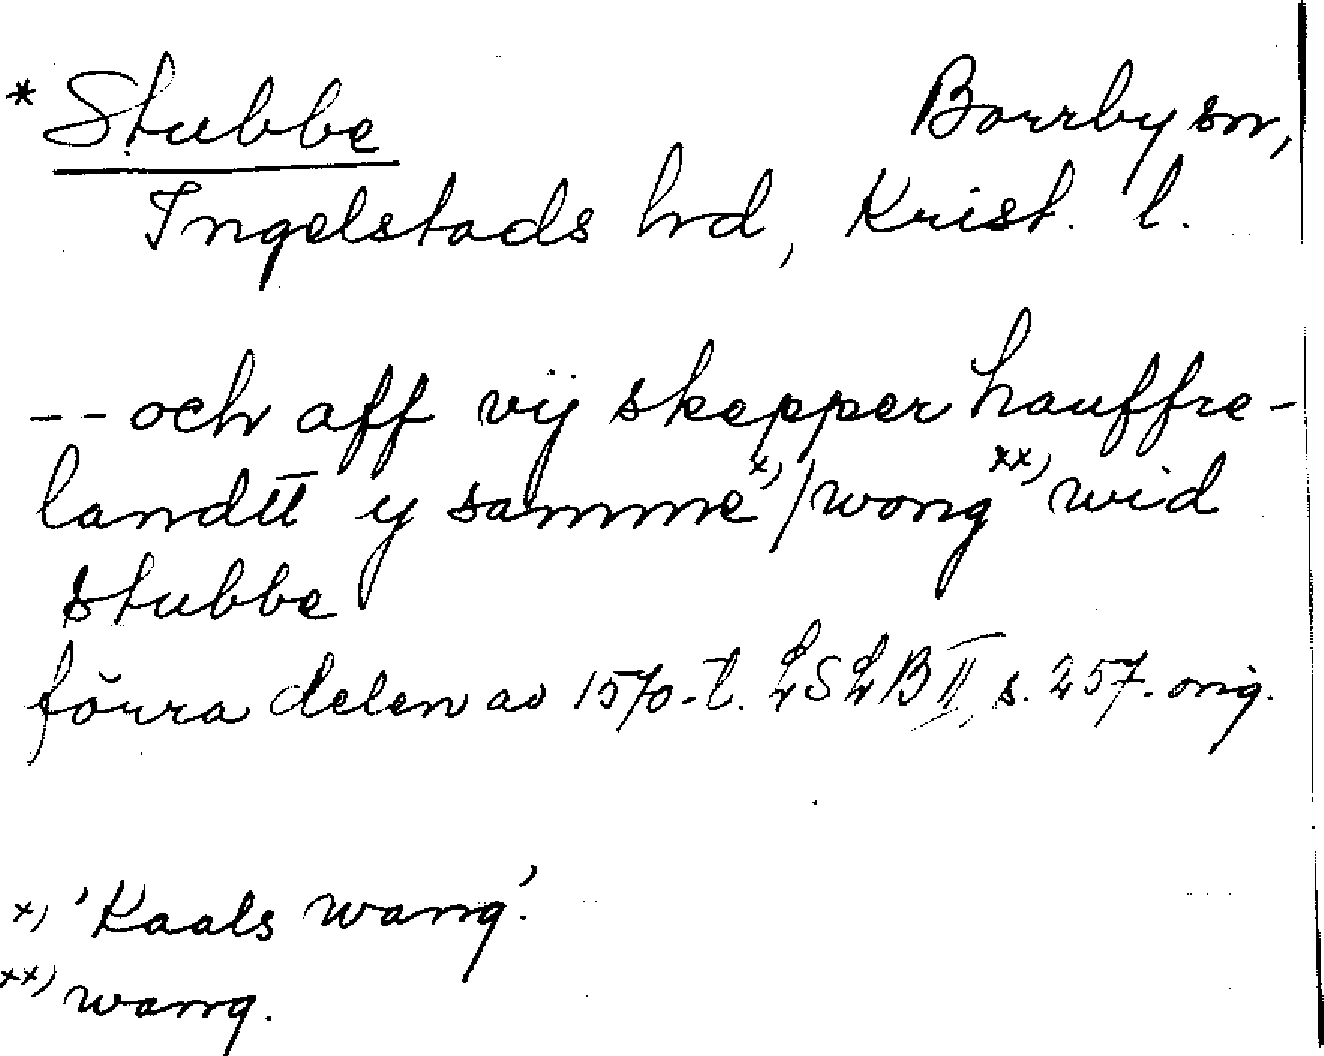 * Stubbe Borrby sn,
Ingelstads hd, Krist. l.
-- och aff vij skepper hauffre-
landtt y samme x) / wong xx) wid
stubbe
förra delen av 1570-t. LSLB II, s. 257. orig.
x) 'Kaals wang'.
xx) wang.